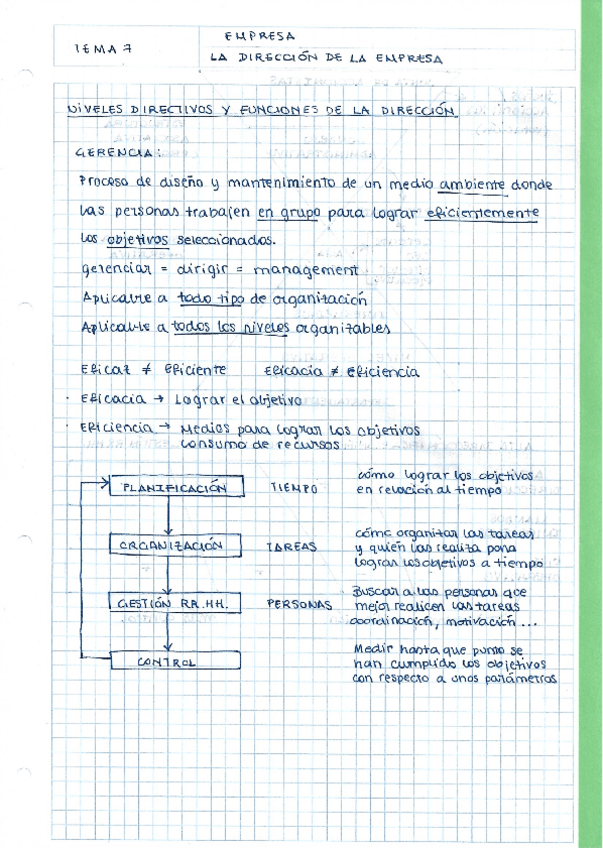 TEMA 7
EMPRESA
LA DIRECCIÓN DE LA EMPRESA
NIVELES DIRECTIVOS Y FUNCIONES DE LA DIRECCIÓN
GERENCIA:
Proceso de diseño y mantenimiento de un medio ambiente donde
las personas trabajen en grupo para lograr eficientemente
los objetivos seleccionados.
gerenciar = dirigir = management
Aplicable a todo tipo de organización
Aplicable a todos los niveles organizables
Eficaz ≠ Eficiente Eficacia ≠ Eficiencia
· Eficacia → Lograr el objetivo
· Eficiencia → Medios para lograr los objetivos
consumo de recursos
PLANIFICACIÓN TIEMPO cómo lograr los objetivos
en relación al tiempo
ORGANIZACIÓN TAREAS cómo organizar las tareas
y quién las realiza para
lograr los objetivos a tiempo
GESTIÓN RR.HH. PERSONAS Buscar a las personas que
mejor realicen las tareas
coordinación, motivación...
CONTROL Medir hasta que punto se
han cumplido los objetivos
con respecto a unos parámetros